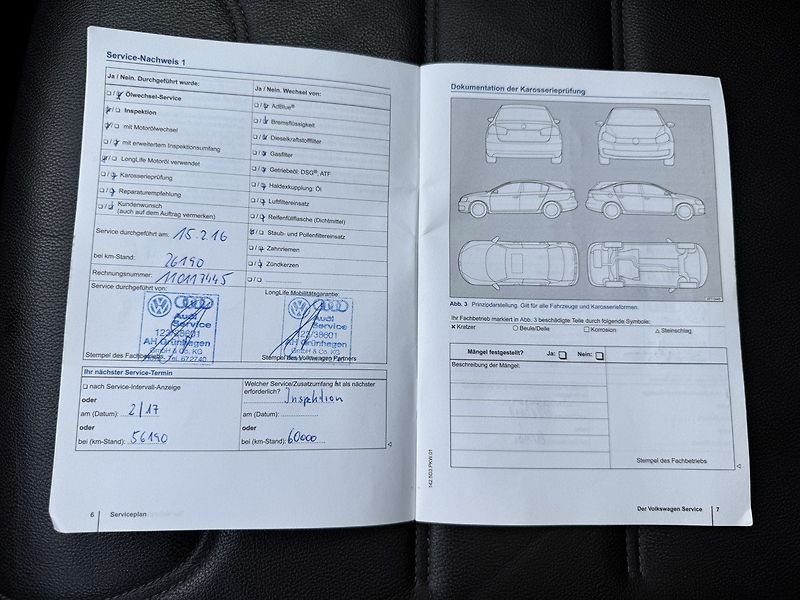 Service-Nachweis 1
Ja / Nein. Durchgeführt wurde:
Ölwechsel-Service
Inspektion
mit Motorölwechsel
mit erweitertem Inspektionsumfang
LongLife Motoröl verwendet
Karosserieprüfung
Reparaturempfehlung
Kundenwunsch
(auch auf dem Auftrag vermerken)
Service durchgeführt am: 15.2.16
bei km-Stand: 26190
Rechnungsnummer: 110117445
Service durchgeführt von:
Audi
Service
AH Grünhegen
GmbH & Co. KG
Stempel des Fachbetriebs
Ja / Nein. Wechsel von:
AdBlue®
Bremsflüssigkeit
Dieselkraftstofffilter
Gasfilter
Getriebeöl: DSG®, ATF
Haldexkupplung: Öl
Luftfiltereinsatz
Reifenfüllflasche (Dichtmittel)
Staub- und Pollenfiltereinsatz
Zahnriemen
Zündkerzen
LongLife Mobilitätsgarantie:
Audi
Service
AH Grünhegen
GmbH & Co. KG
Stempel des Volkswagen Partners
Ihr nächster Service-Termin
nach Service-Intervall-Anzeige
oder
am (Datum): 2/17
oder
bei (km-Stand): 56190
Welcher Service/Zusatzumfang ist als nächster
erforderlich? Inspektion
am (Datum):
oder
bei (km-Stand): 60000
6 Serviceplan
Dokumentation der Karosserieprüfung
Abb. 3 Prinzipdarstellung. Gilt für alle Fahrzeuge und Karosserieformen.
Ihr Fachbetrieb markiert in Abb. 3 beschädigte Teile durch folgende Symbole:
X Kratzer ○ Beule/Delle □ Korrosion △ Steinschlag
Mängel festgestellt? Ja: Nein:
Beschreibung der Mängel:
Stempel des Fachbetriebs
142.5D3.PKW.01
Der Volkswagen Service 7